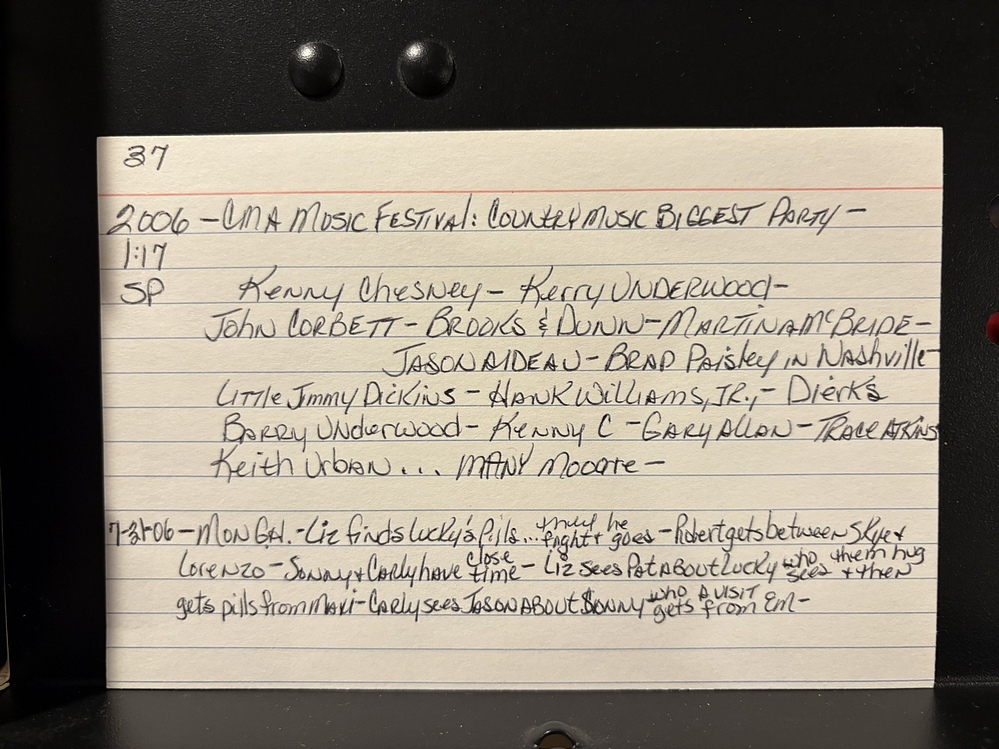 37
2006 - CMA MUSIC FESTIVAL: COUNTRY MUSIC BIGGEST PARTY -
1:17
SP Kenny Chesney - Kerry UNDERWOOD -
JOHN CORBETT - BROOKS & DUNN - MARTINA McBRIDE -
JASON AIDEAU - BRAD Paisley in Nashville -
Little Jimmy Dickins - HANK WILLIAMS, JR., - Dierks
Barry Underwood - Kenny C - GARY ALLAN - TRACE ATKINS
Keith Urban ... MANY Mooore -
7-31-06 - MON GH. - Liz finds Lucky's pills... they fight & he goes - Robert gets between Skye &
Lorenzo - Sonny & Carly have close time - Liz sees Pat ABOUT Lucky who sees them hug & then
gets pills from Maxi - Carly sees JASON ABOUT SONNY who gets A VISIT from Em -